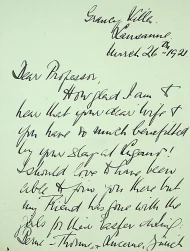 Grancy Villa.
Lausanne.
March 26th 1921
Dear Professor,
How glad I am to
hear that your dear wife &
you have so much benefited
by your stay at Lugano!
I should love to have been
able to join you there but
my friend has gone with the
girls for their Easter outing
Berne - Thoune - Lucerne,